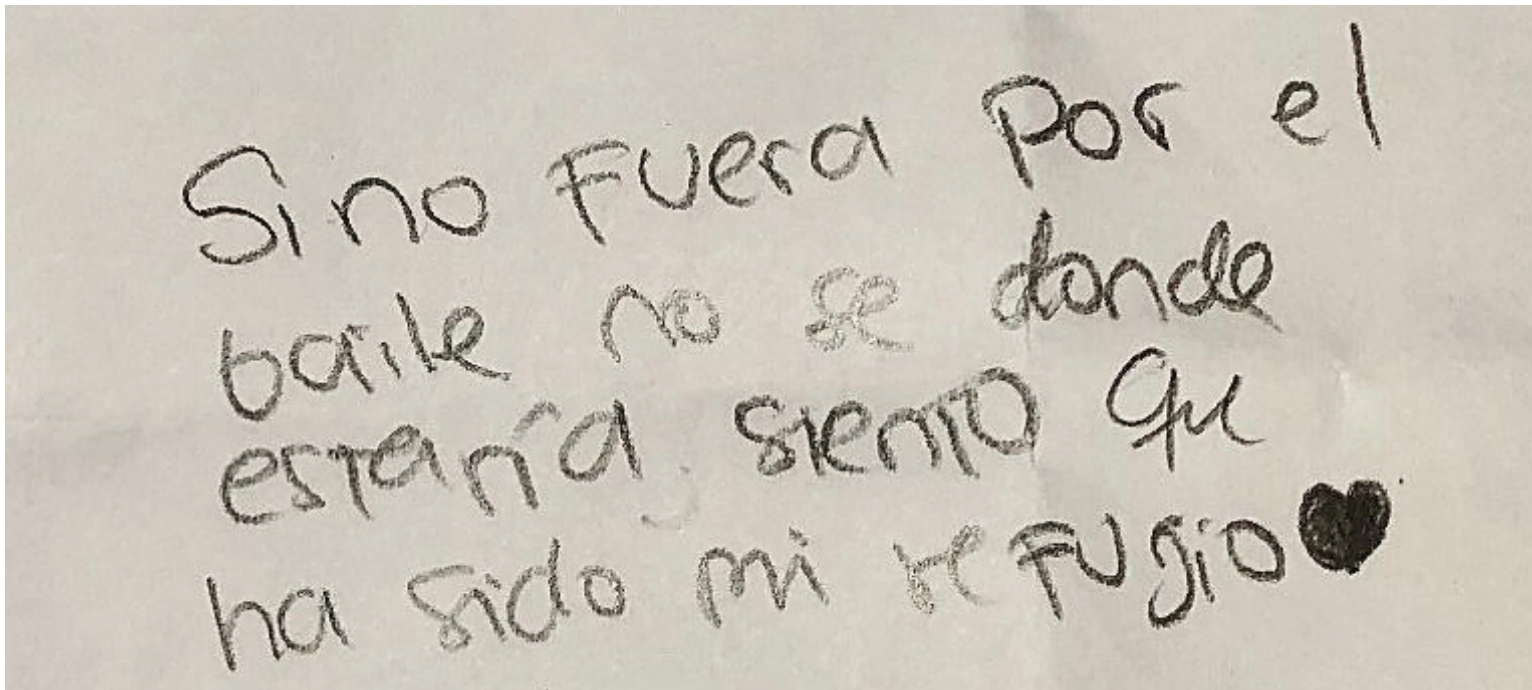 Si no Fuera por el
baile no se donde
estaría, siento que
ha sido mi refugio♥